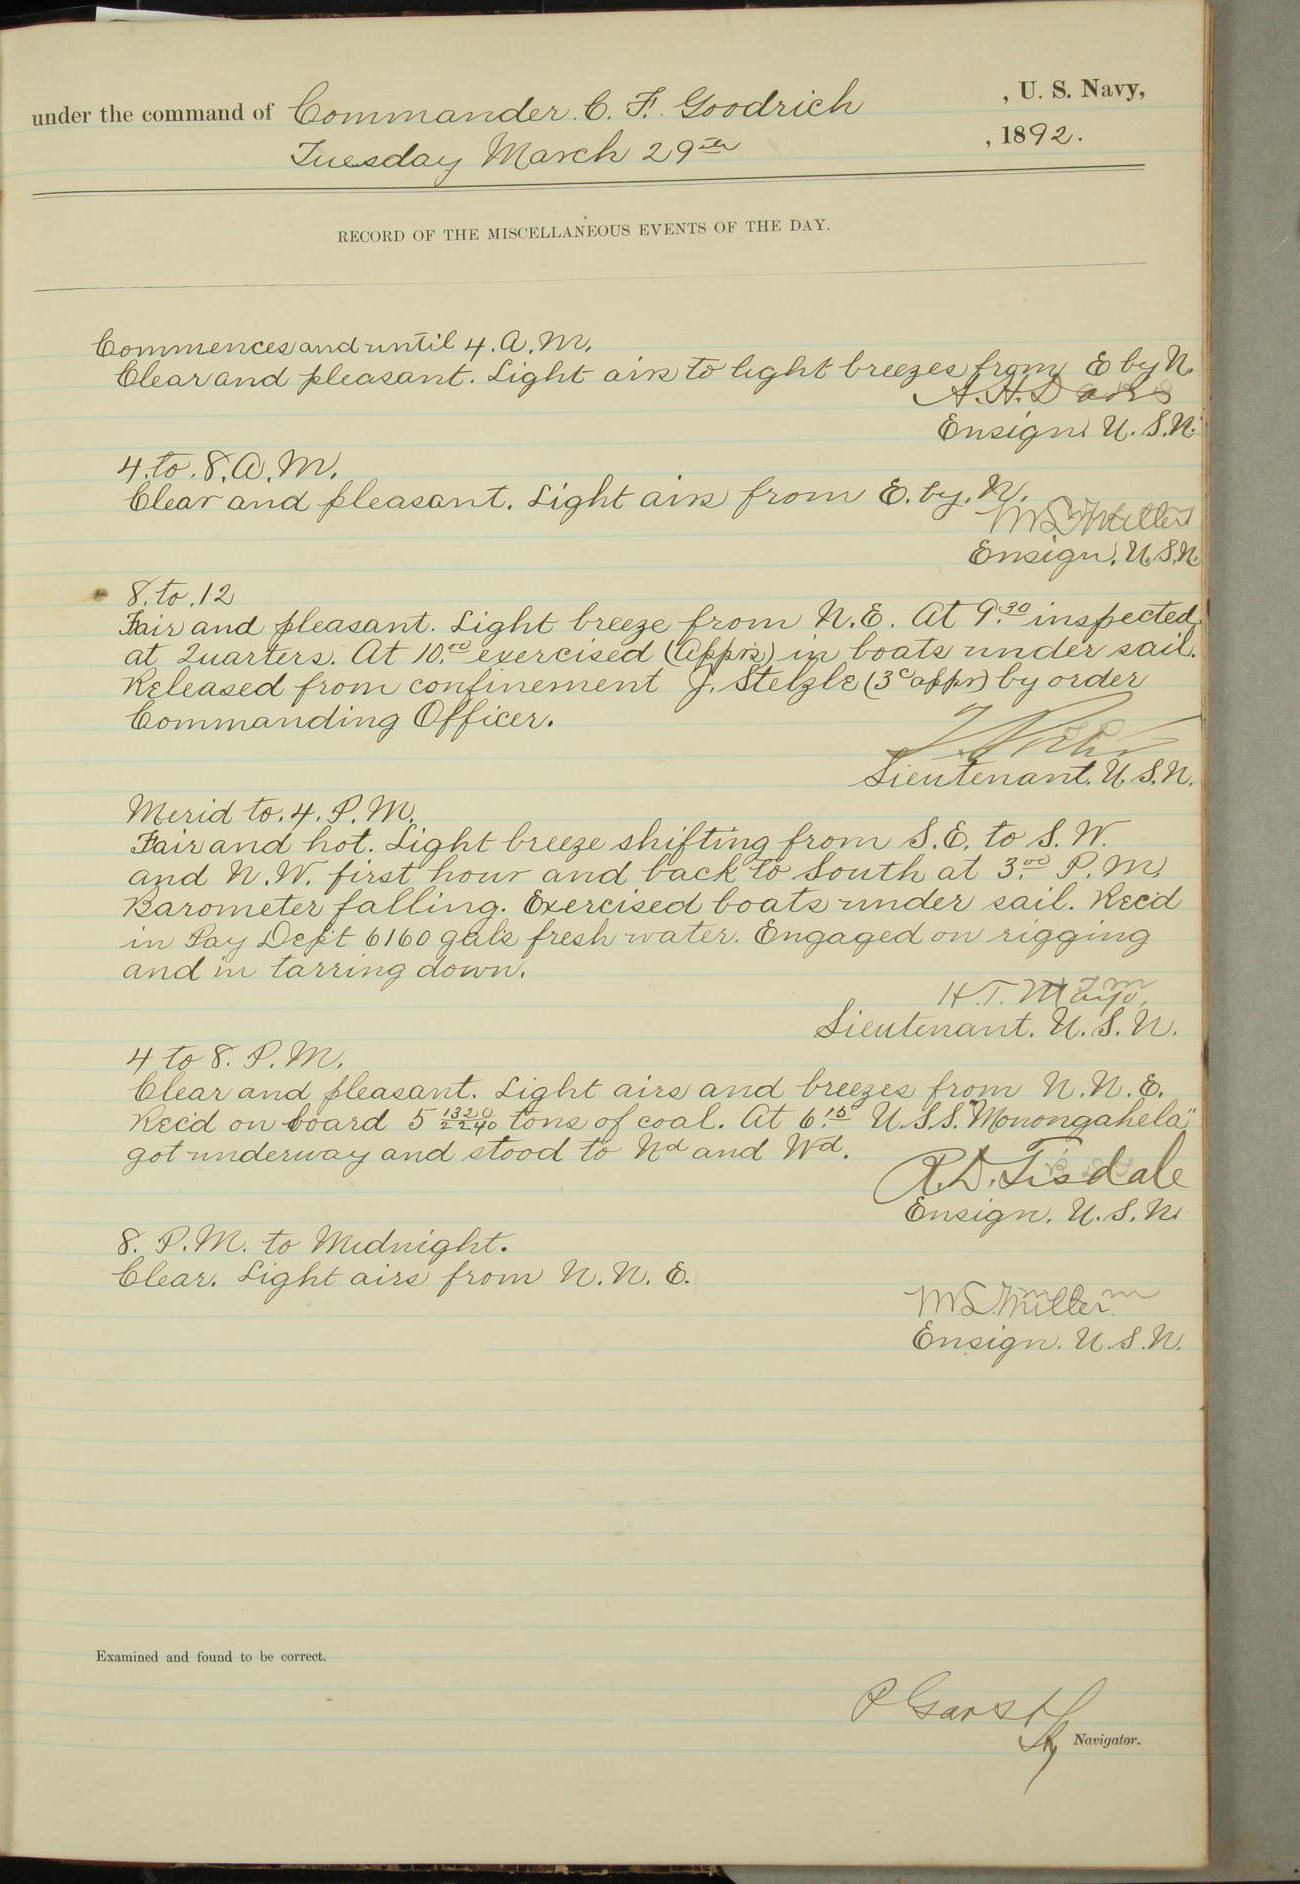 under the command of Commander. C. F. Goodrich , U. S. Navy,
Tuesday March 29th , 1892.
RECORD OF THE MISCELLANEOUS EVENTS OF THE DAY.
Commences and until 4. A. M.
Clear and pleasant. Light airs to light breezes from E by N.
A. H. Davis
Ensign U. S. N.
4. to. 8. A. M.
Clear and pleasant. Light airs from E. by. N.
M L Miller
Ensign. U. S. N.
8. to. 12
Fair and pleasant. Light breeze from N. E. At 9.30 inspected
at Quarters. At 10.00 exercised (Apprs) in boats under sail.
Released from confinement J. Stelzle (3c appr) by order
Commanding Officer.
Lieutenant. U. S. N.
Merid to. 4. P. M.
Fair and hot. Light breeze shifting from S. E. to S. W.
and N. W. first hour and back to South at 3.00 P. M.
Barometer falling. Exercised boats under sail. Rec'd
in Pay Dep't 6160 gals fresh water. Engaged on rigging
and in tarring down.
H. T. Mayo,
Lieutenant. U. S. N.
4 to 8. P. M.
Clear and pleasant. Light airs and breezes from N. N. E.
Rec'd on board 5 1320/2240 tons of coal. At 6.15 U. S. S. "Monongahela"
got underway and stood to Nd and Wd.
R. D. Tisdale
Ensign. U. S. N.
8. P. M. to Midnight.
Clear. Light airs from N. N. E.
M L Miller
Ensign. U. S. N.
Examined and found to be correct.
P Garst
Navigator.